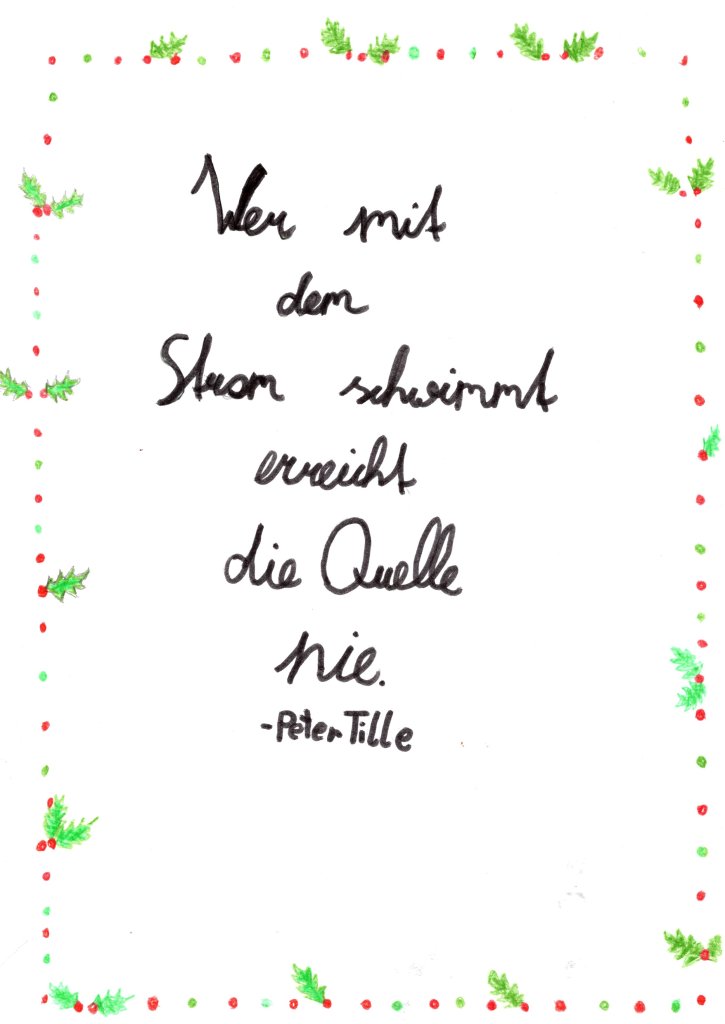 Wer mit
dem
Strom schwimmt
erreicht
die Quelle
nie.
-Peter Tille